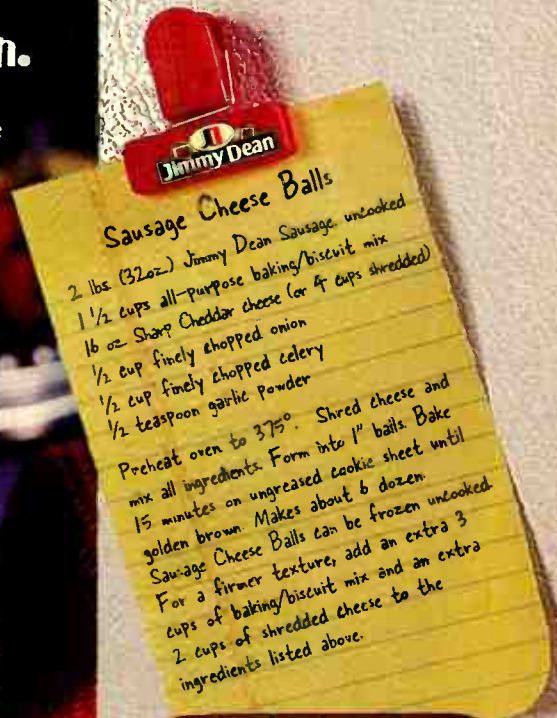 n.
Jimmy Dean
Sausage Cheese Balls
2 lbs. (32oz.) Jimmy Dean Sausage uncooked
1 1/2 cups all-purpose baking/biscuit mix
16 oz Sharp Cheddar cheese (or 4 cups shredded)
1/2 cup finely chopped onion
1/2 cup finely chopped celery
1/2 teaspoon garlic Powder
Preheat oven to 375°. Shred cheese and
mix all ingredients. Form into 1" balls. Bake
15 minutes on ungreased cookie sheet until
golden brown. Makes about 6 dozen.
Sausage Cheese Balls can be frozen uncooked.
For a firmer texture, add an extra 3
cups of baking/biscuit mix and an extra
2 cups of shredded cheese to the
ingredients listed above.